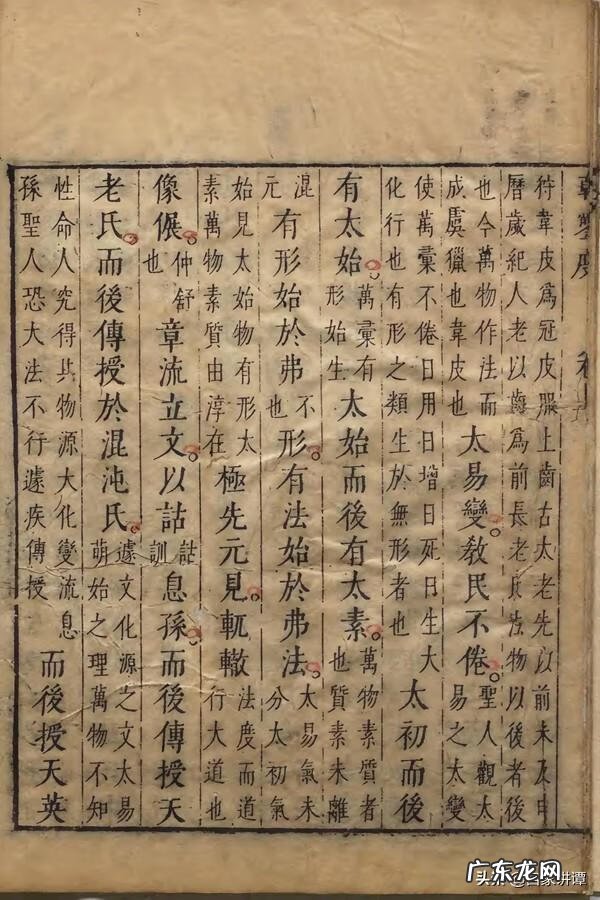 乾鑿度
符韋皮爲冠皮服上齒古太老先以前未及中
曆歲紀人老以齒爲前長老氏法物以後者後
也今萬物作法而
成虞獵也韋皮也
太易變教民不倦
聖人觀太
易之太變
使萬彙不倦日用日增日死日生大
化行也有形之類生於無形者也
太初而後
有太始
萬彙有
形始生
太始而後有太素
萬物素質者
也質素未離
混
元
有形始於弗
不
也
形有法始於弗法
太易氣未
分太初氣
始見太始物有形太
素萬物素質由淳在
極先元見軏轍
法度而道
行大道也
像
仲舒
也
章流立文以詁
詁
訓
息孫而後傳授天
老氏而後傳授於混沌氏
遽文化源之文太易
萌始之理萬物不知
性命人究得其物源大化變流息
孫聖人恐大法不行遽疾傳授
而後授天英
广东龙网
头条 @百家讲谭